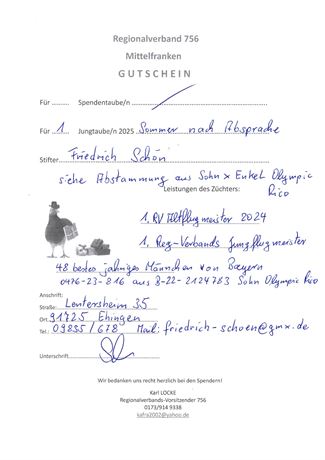 Regionalverband 756
Mittelfranken
GUTSCHEIN
Für .......... Spendentaube/n
Für 1 Jungtaube/n 2025 Sommer nach Absprache
Stifter Friedrich Schön
siehe Abstammung aus Sohn x Enkel Olympic
Leistungen des Züchters: Rico
1. RV Altflugmeister 2024
1. Reg-Verbands Jungflugmeister
48 bestes jähriges Männchen von Bayern
0476-23-816 aus B-22-2124783 Sohn Olympic Rico
Anschrift:
Straße: Lentersheim 35
Ort: 91725 Ehingen
Tel.: 09835/678 Mail: friedrich-schoen@gmx.de
Unterschrift
Wir bedanken uns recht herzlich bei den Spendern!
Karl LOCKE
Regionalverbands-Vorsitzender 756
0173/914 9338
kafra2002@yahoo.de